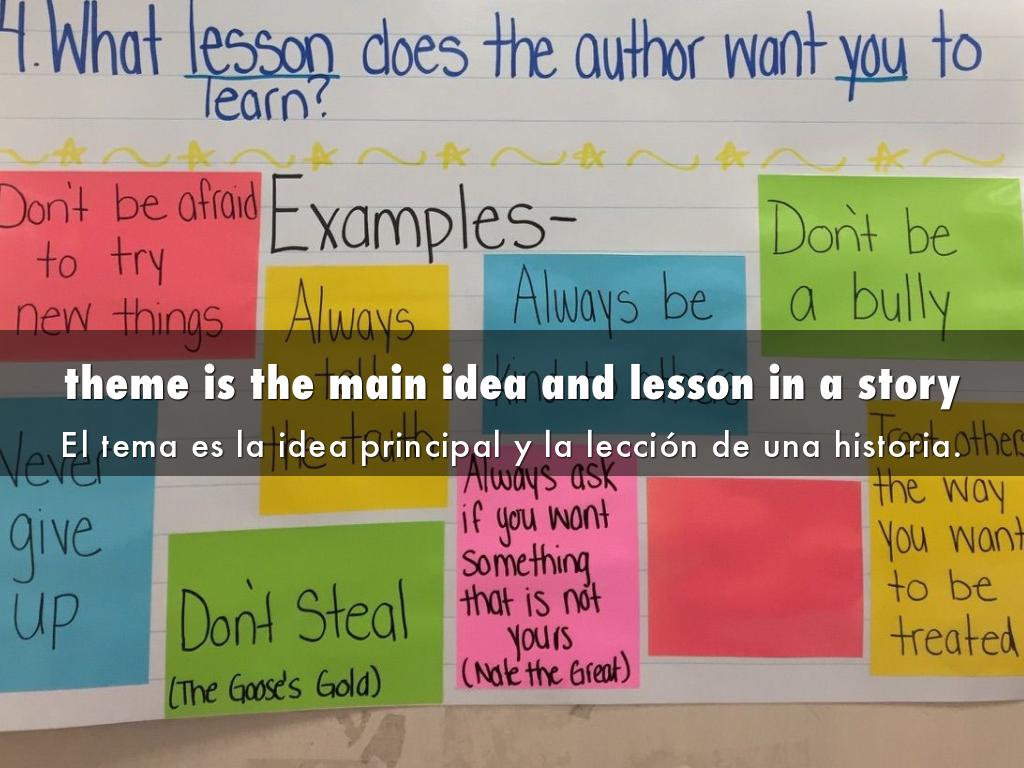 4. What lesson does the author want you to
learn?
Examples-
Don't be afraid
to try
new things
Always
tell
the truth
Always be
kind to others
Don't be
a bully
theme is the main idea and lesson in a story
El tema es la idea principal y la lección de una historia.
Never
give
up
Don't Steal
(The Goose's Gold)
Always ask
if you want
something
that is not
yours
(Nate the Great)
Treat others
the way
you want
to be
treated